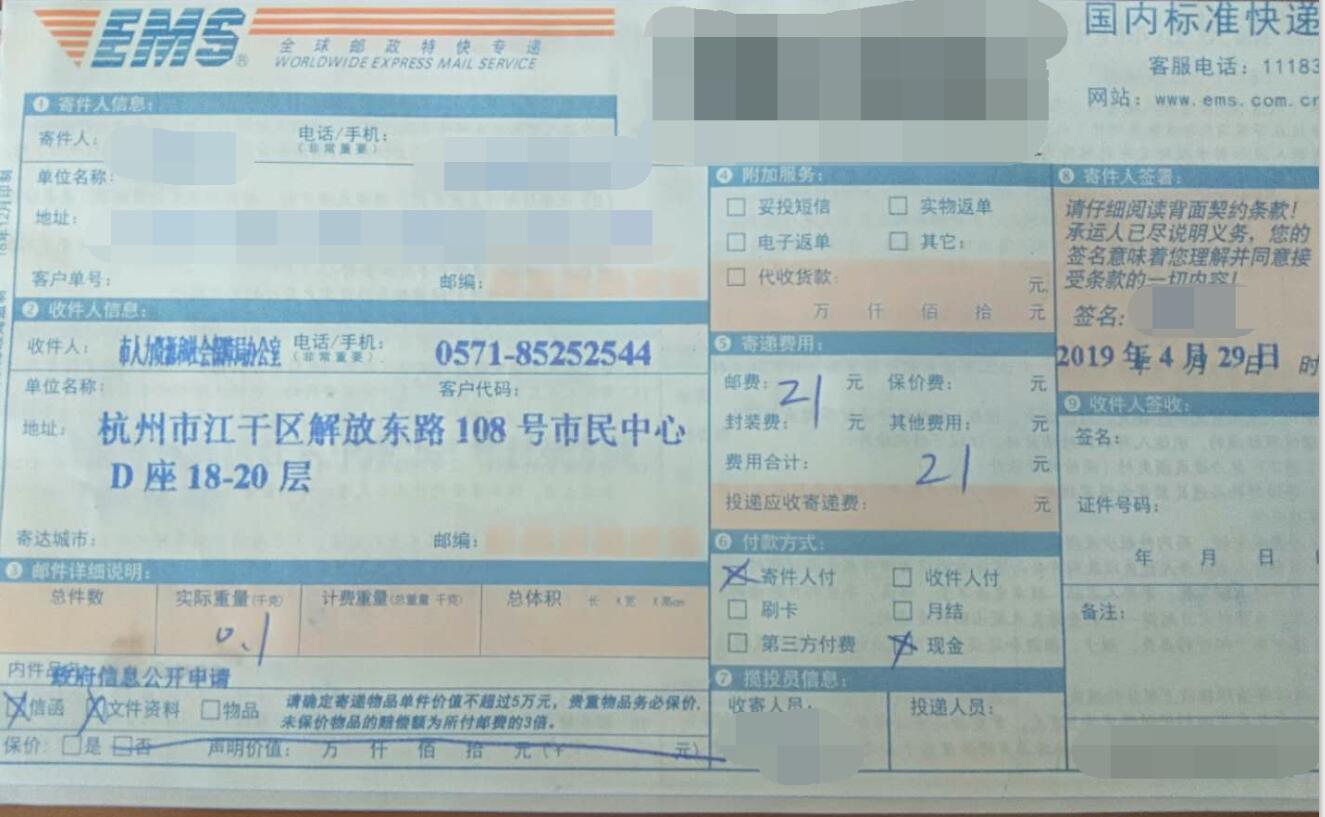 EMS®
全球邮政特快专递
WORLDWIDE EXPRESS MAIL SERVICE
国内标准快递
客服电话：11183
网站：www.ems.com.cn
① 寄件人信息：
寄件人：
电话/手机：
（非常重要）
单位名称：
地址：
客户单号：
邮编：
② 收件人信息：
收件人：市人力资源和社会保障局办公室
电话/手机：
（非常重要）
0571-85252544
单位名称：
客户代码：
地址：杭州市江干区解放东路 108 号市民中心
D 座 18-20 层
寄达城市：
邮编：
③ 邮件详细说明：
总件数
实际重量(千克)
计费重量(总重量 千克)
总体积 长 X宽 X高cm
0.1
内件品名：
政府信息公开申请
信函 文件资料 物品
请确定寄递物品单件价值不超过5万元，贵重物品务必保价，
未保价物品的赔偿额为所付邮费的3倍。
保价：是 否 声明价值： 万 仟 佰 拾 元（¥ 元）
④ 附加服务：
妥投短信 实物返单
电子返单 其它：
代收货款： 元
万 仟 佰 拾 元
⑤ 寄递费用：
邮费：21 元 保价费： 元
封装费： 元 其他费用： 元
费用合计： 21 元
投递应收寄递费： 元
⑥ 付款方式：
寄件人付 收件人付
刷卡 月结
第三方付费 现金
⑦ 揽投员信息：
收寄人员：
投递人员：
⑧ 寄件人签署：
请仔细阅读背面契约条款！
承运人已尽说明义务，您的
签名意味着您理解并同意接
受条款的一切内容！
签名：
2019 年 4 月 29 日 时
⑨ 收件人签收：
签名：
证件号码：
年 月 日
备注：